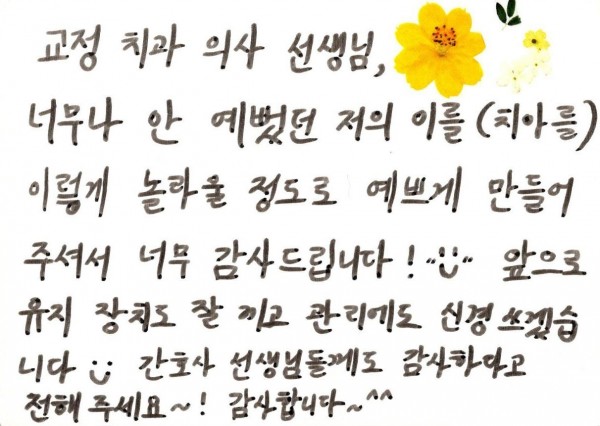 교정 치과 의사 선생님,
너무나 안 예뻤던 저의 이를 (치아를)
이렇게 놀라울 정도로 예쁘게 만들어
주셔서 너무 감사드립니다! ¨ü¨ 앞으로
유지 장치도 잘 끼고 관리에도 신경 쓰겠습
니다 ü 간호사 선생님들께도 감사하다고
전해 주세요~! 감사합니다~^^